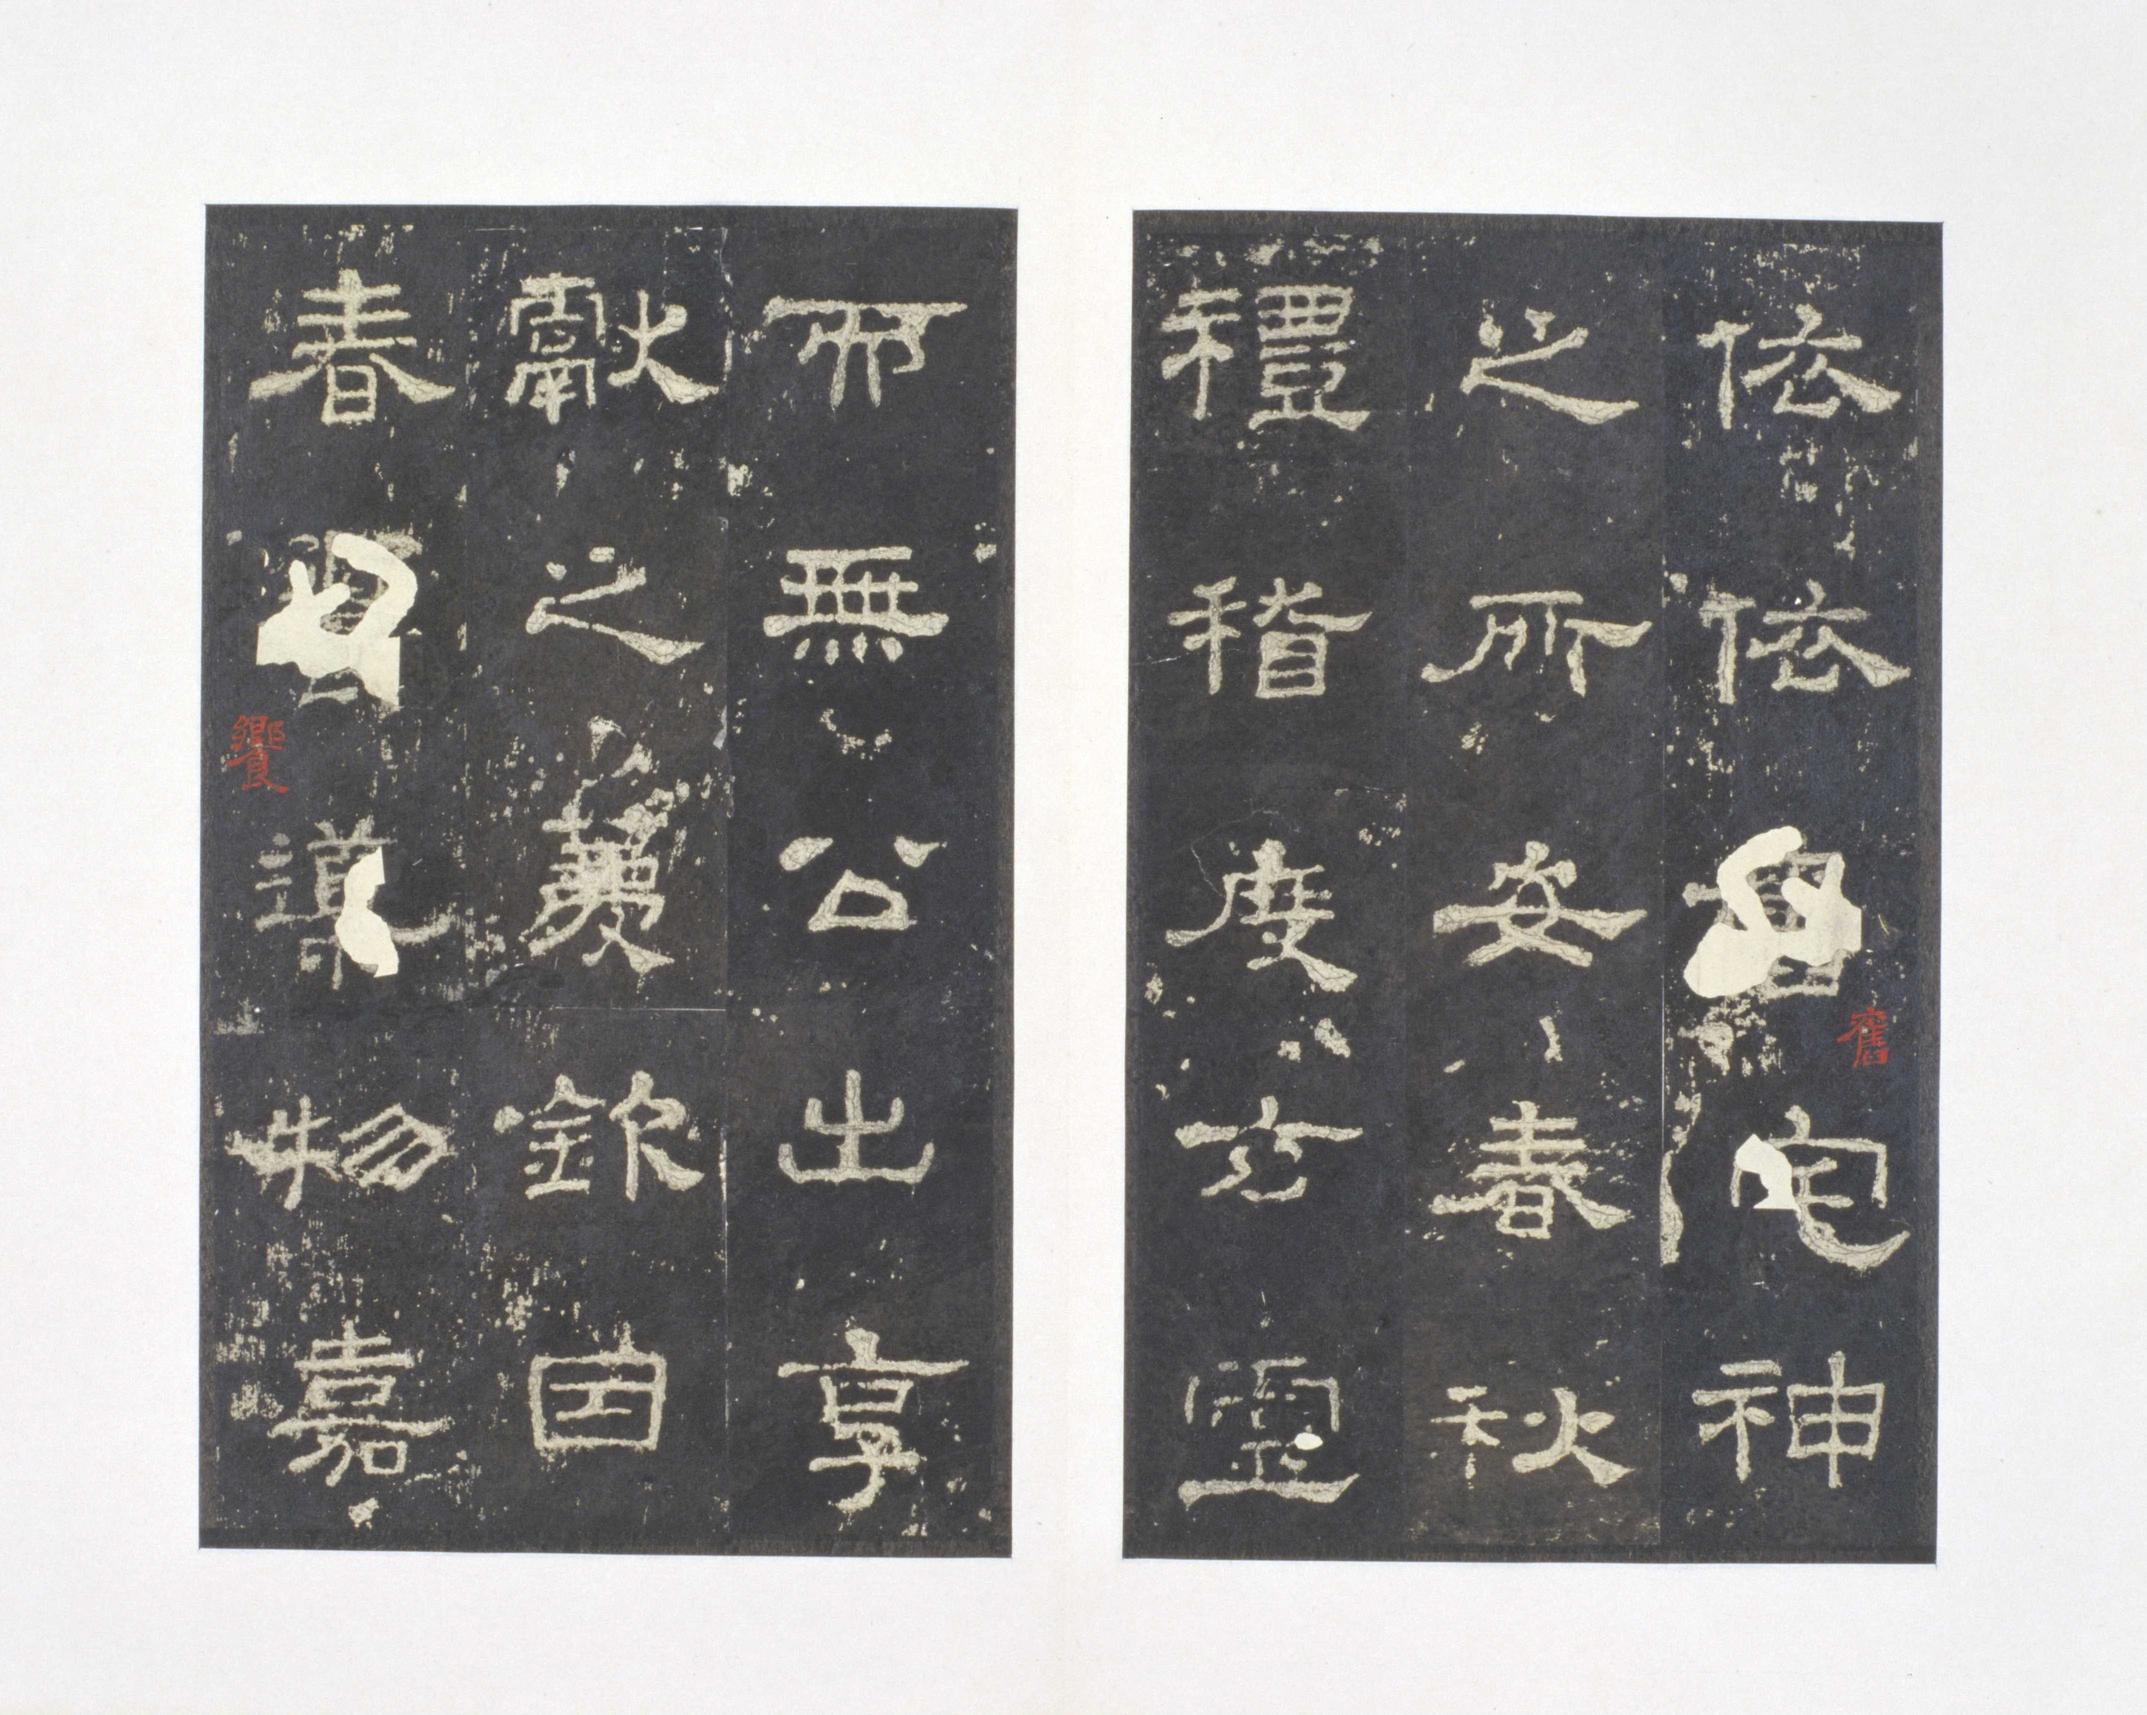 依依舊宅神
舊
之所安春秋
禮稽度玄靈
而無公出享
獻之薦欽因
春饗導物嘉
饗